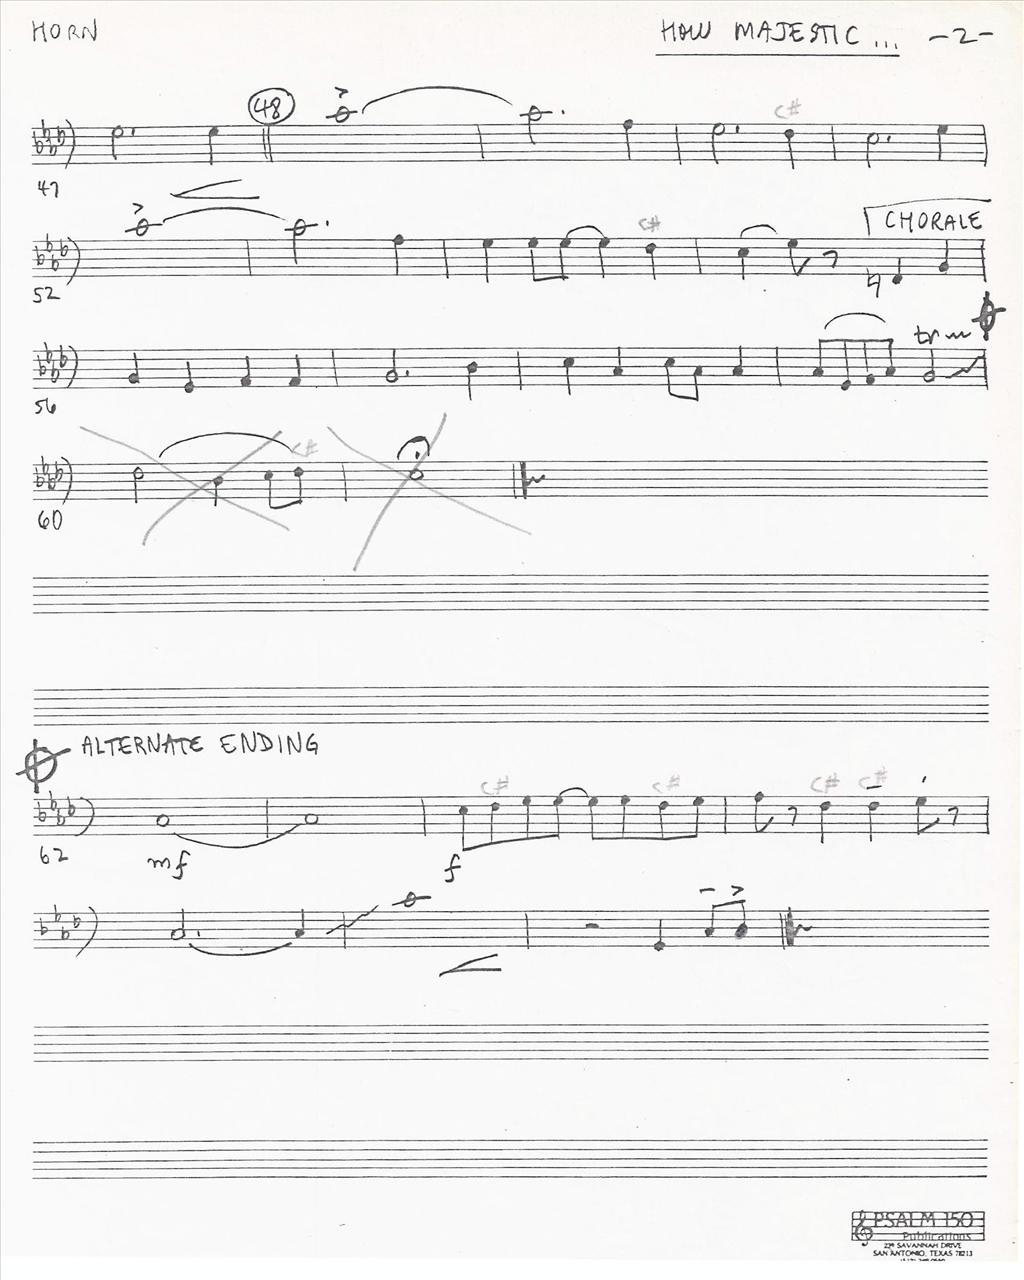 HORN
HOW MAJESTIC ... -2-
48
C#
47
C#
CHORALE
52
tr
56
C#
60
ALTERNATE ENDING
C# C# C# C#
62
mf f
PSALM 150
Publications
SAVANNAH DRIVE
SAN ANTONIO, TEXAS 78213